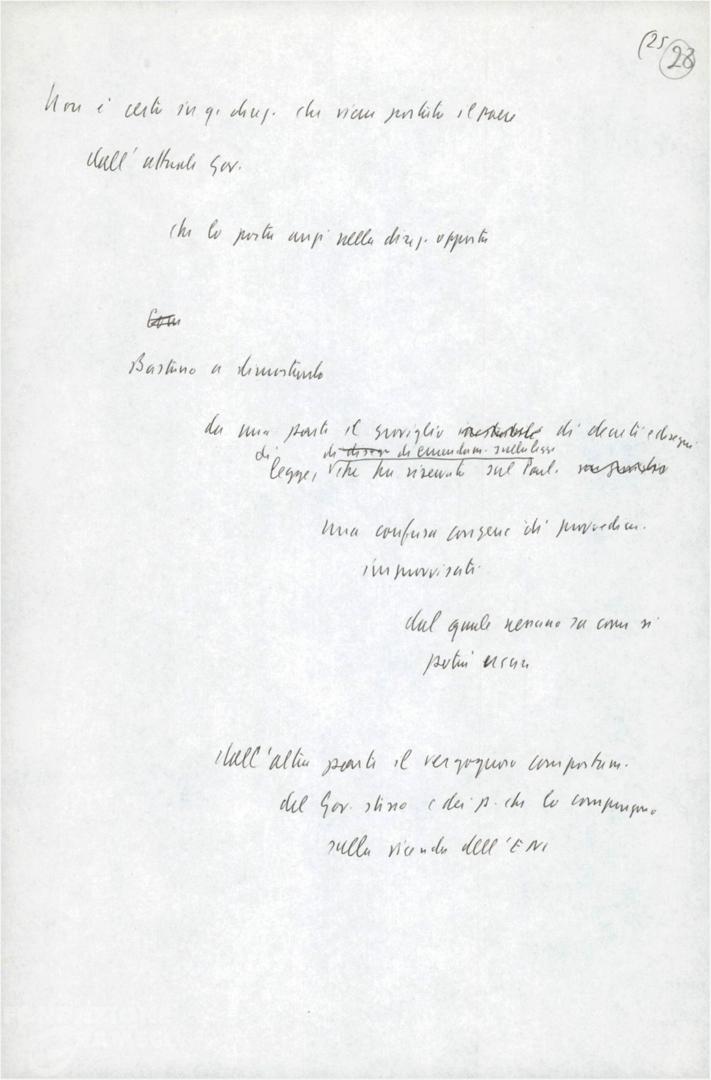 (25 28
Non è certo in q. direz. che viene portato il paese
dall'attuale Gov.
che lo porta anzi nella direz. opposta
Com
Bastano a dimostrarlo
da una parte il groviglio di decreti e disegni
di di disegn di emendam. sulla legge
legge, che ha riservato sul Parl.
una confusa congerie di provvedim.
improvvisati
dal quale nessuno sa come si
potrà uscire
dall'altra parte il vergognoso comportam.
del Gov. stesso e dei p. che lo compongono
sulla vicenda dell'ENI